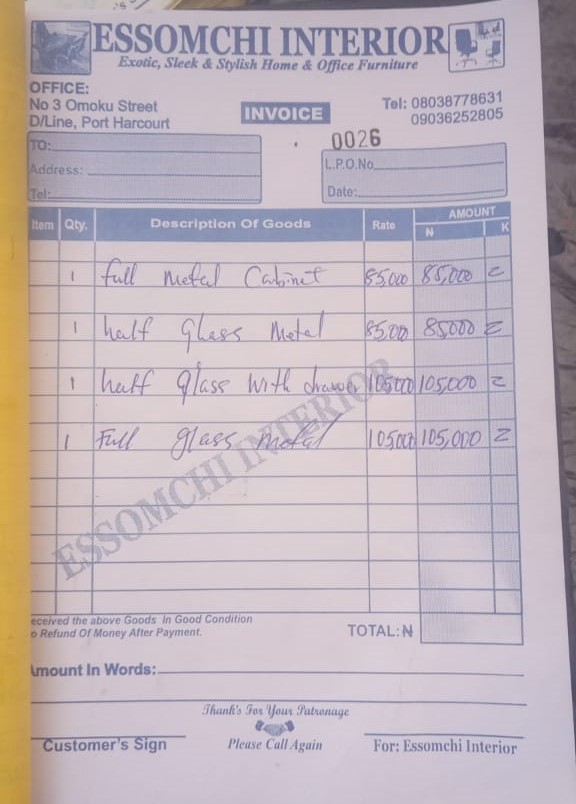 ESSOMCHI INTERIOR
Exotic, Sleek & Stylish Home & Office Furniture
OFFICE:
No 3 Omoku Street
D/Line, Port Harcourt
INVOICE
Tel: 08038778631
09036252805
0026
TO:
Address:
Tel:
L.P.O.No
Date:
Item Qty. Description Of Goods Rate AMOUNT
N K
1 full metal Cabinet 85,000 85,000 =
1 half Glass Metal 85,00 85000 =
1 half glass with drawer 105000 105,000 =
1 Full glass metal 105000 105,000 =
ESSOMCHI INTERIOR
eceived the above Goods In Good Condition
o Refund Of Money After Payment.
TOTAL:₦
Amount In Words:
Thank's For Your Patronage
Customer's Sign Please Call Again For: Essomchi Interior